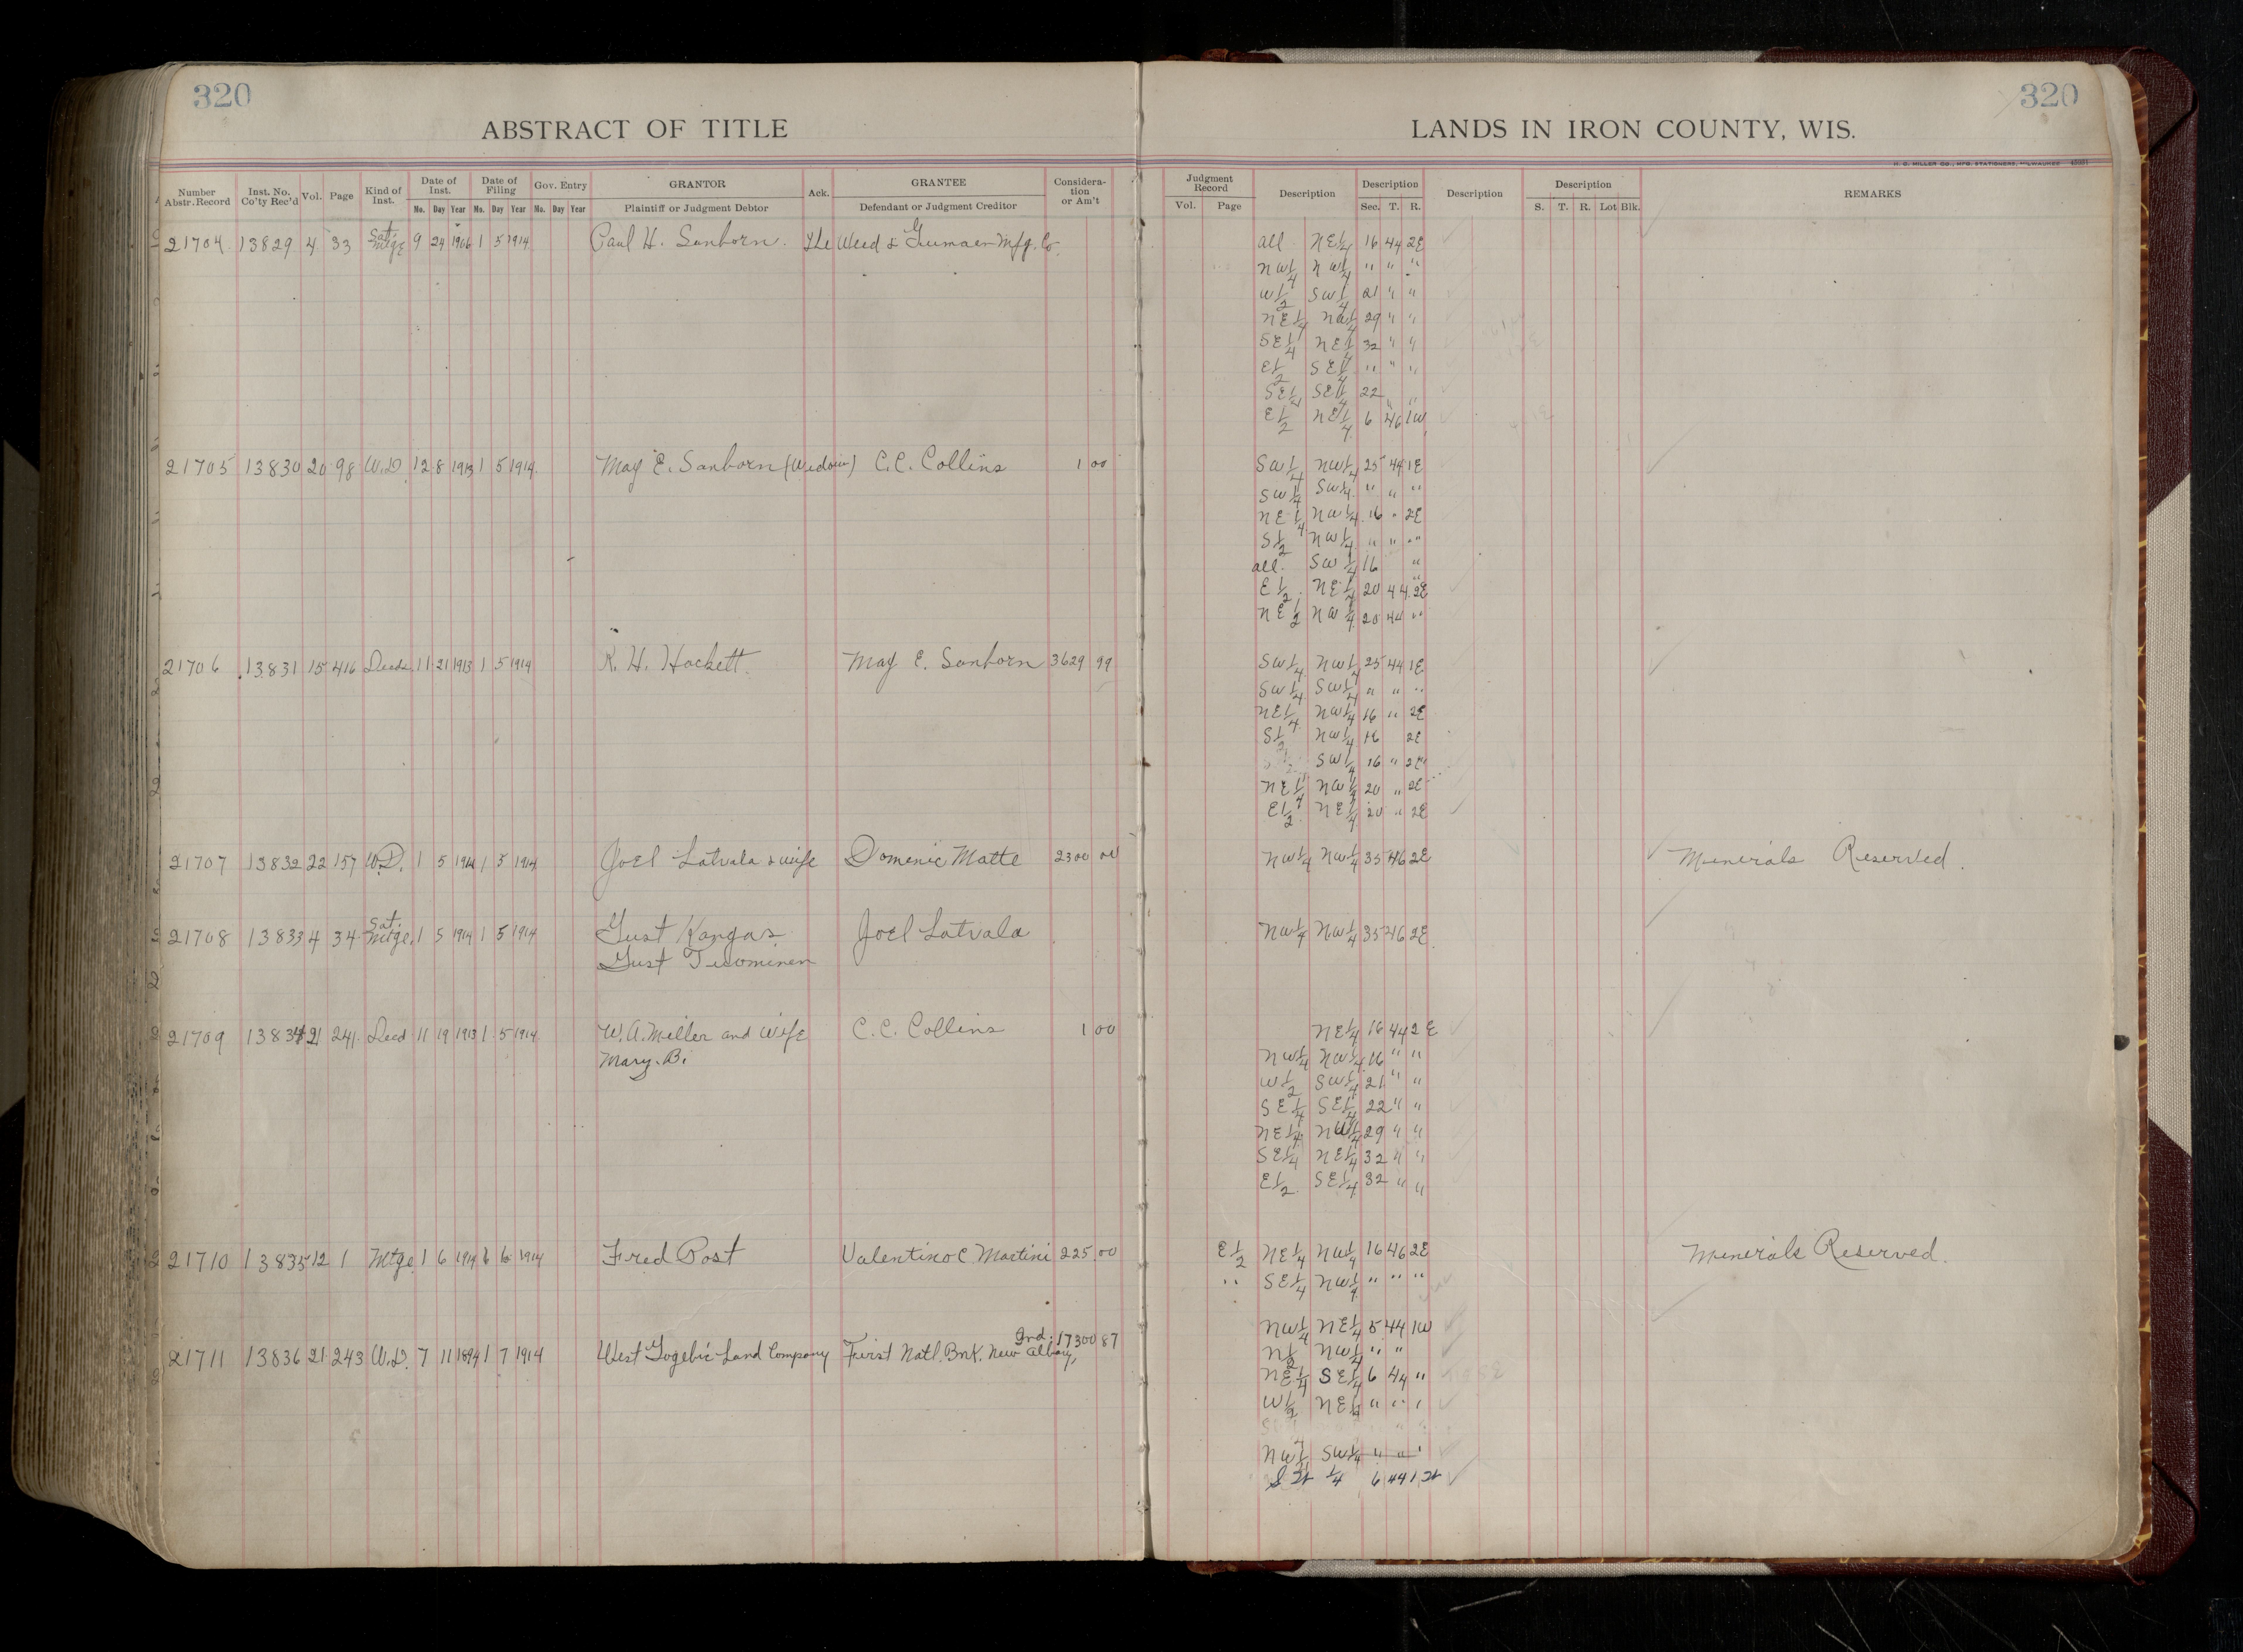 320
320
ABSTRACT OF TITLE
LANDS IN IRON COUNTY, WIS.
H. G. MILLER CO., MFG. STATIONERS, MILWAUKEE
Number Abstr. Record Inst. No. Co'ty Rec'd Vol. Page Kind of Inst. Date of Inst. Mo. Day Year Date of Filing Mo. Day Year Gov. Entry Mo. Day Year GRANTOR Plaintiff or Judgment Debtor Ack. GRANTEE Defendant or Judgment Creditor Consideration or Am't
Judgment Record Vol. Page Description Description Sec. T. R. Description Description S. T. R. Lot Blk. REMARKS
21704 13829 4 33 Sat. Mtge 9 24 1906 1 5 1914 Paul H. Sanborn. The Weed & Gumaer Mfg. Co. all NE1/4 16 44 2E
NW1/4 NW1/4 " " "
W1/2 SW1/4 21 " "
NE1/4 NW1/4 29 " "
SE1/4 NE1/4 32 " "
E1/2 SE1/4 " " "
SE1/4 SE1/4 22 " "
E1/2 NE1/4 6 46 1W
21705 13830 20 98 W.D. 12 8 1913 1 5 1914 May E. Sanborn (Widow) C.C. Collins 1 00 SW1/4 NW1/4 25 44 1E
SW1/4 SW1/4 " " "
NE1/4 NW1/4 16 " 2E
S1/2 NW1/4 " " "
all. SW1/4 16 "
E1/2 NE1/4 20 44 2E
NE1/2 NW1/4 20 44 "
21706 13831 15 416 Deeds 11 21 1913 1 5 1914 R. H. Hackett. May E. Sanborn 3629 99 SW1/4 NW1/4 25 44 1E
SW1/4 SW1/4 " " "
NE1/4 NW1/4 16 " 2E
S1/2 NW1/4 16 2E
SW1/4 16 " 2E
NE1/4 NW1/4 20 " 2E
E1/2 NE1/4 20 " 2E
21707 13832 22 157 W.D. 1 5 1914 1 5 1914 Joel Latvala & wife Domenic Matte 2300 00 NW1/4 NW1/4 35 46 2E Minerals Reserved.
21708 13833 4 34 Sat. Mtge. 1 5 1914 1 5 1914 Gust Kangas Joel Latvala NW1/4 NW1/4 35 46 2E
Gust Tuominen
21709 13834 21 241 Deed 11 19 1913 1 5 1914 W. A. Miller and Wife C. C. Collins 1 00 NE1/4 16 44 2E
Mary. B. NW1/4 NW1/4 16 " "
W1/2 SW1/4 21 " "
SE1/4 SE1/4 22 " "
NE1/4 NW1/4 29 " "
SE1/4 NE1/4 32 " "
E1/2 SE1/4 32 " "
21710 13835 12 1 Mtge 1 6 1914 1 6 1914 Fred Post Valentino C. Martini 225 00 E1/2 NE1/4 NW1/4 16 46 2E Minerals Reserved.
" SE1/4 NW1/4 " " "
NW1/4 NE1/4 5 44 1W
21711 13836 21 243 W.D. 7 11 1894 1 7 1914 West Gogebic Land Company First Natl. Bnk. New Albany, Ind. 17300 87 N1/2 NW1/4 " "
NE1/4 SE1/4 6 44 "
W1/2 NE1/4 " " "
NW1/4 SW1/4 " " "
SW 1/4 6 44 1W